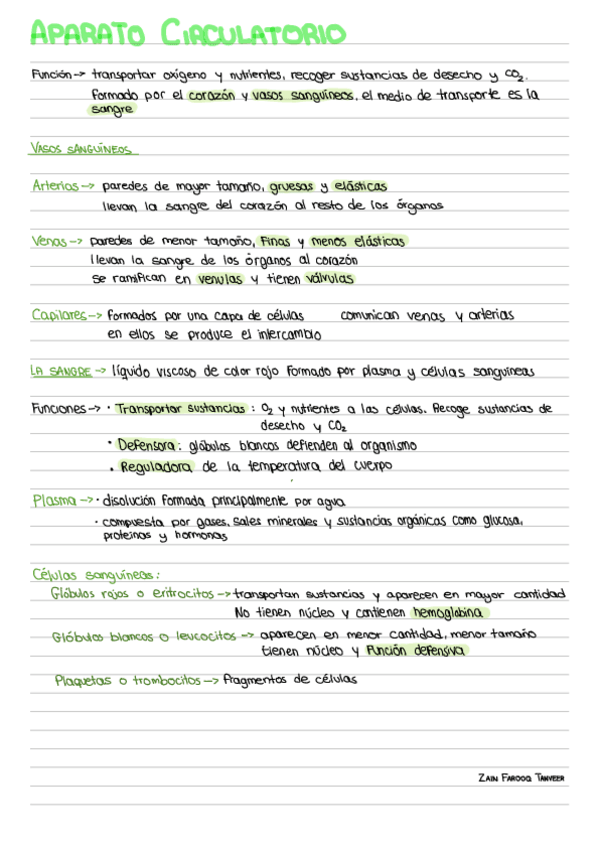 APARATO CIRCULATORIO
Función -> transportar oxígeno y nutrientes, recoger sustancias de desecho y CO2.
formado por el corazón y vasos sanguíneos, el medio de transporte es la
sangre
VASOS SANGUÍNEOS
Arterias -> paredes de mayor tamaño, gruesas y elásticas
llevan la sangre del corazón al resto de los órganos
Venas -> paredes de menor tamaño, finas y menos elásticas
llevan la sangre de los órganos al corazón
se ramifican en venulas y tienen válvulas
Capilares -> formados por una capa de células comunican venas y arterias
en ellos se produce el intercambio
LA SANGRE -> líquido viscoso de color rojo formado por plasma y células sanguíneas
Funciones -> · Transportar sustancias : O2 y nutrientes a las células. Recoge sustancias de
desecho y CO2
· Defensora : glóbulos blancos defienden al organismo
· Reguladora de la temperatura del cuerpo
Plasma -> · disolución formada principalmente por agua
· compuesta por gases, sales minerales y sustancias orgánicas como glucosa,
proteínas y hormonas
Células sanguíneas:
Glóbulos rojos o eritrocitos -> transportan sustancias y aparecen en mayor cantidad
No tienen núcleo y contienen hemoglobina
Glóbulos blancos o leucocitos -> aparecen en menor cantidad, menor tamaño
tienen núcleo y función defensiva
Plaquetas o trombocitos -> fragmentos de células
ZAIN FAROOQ TANVEER